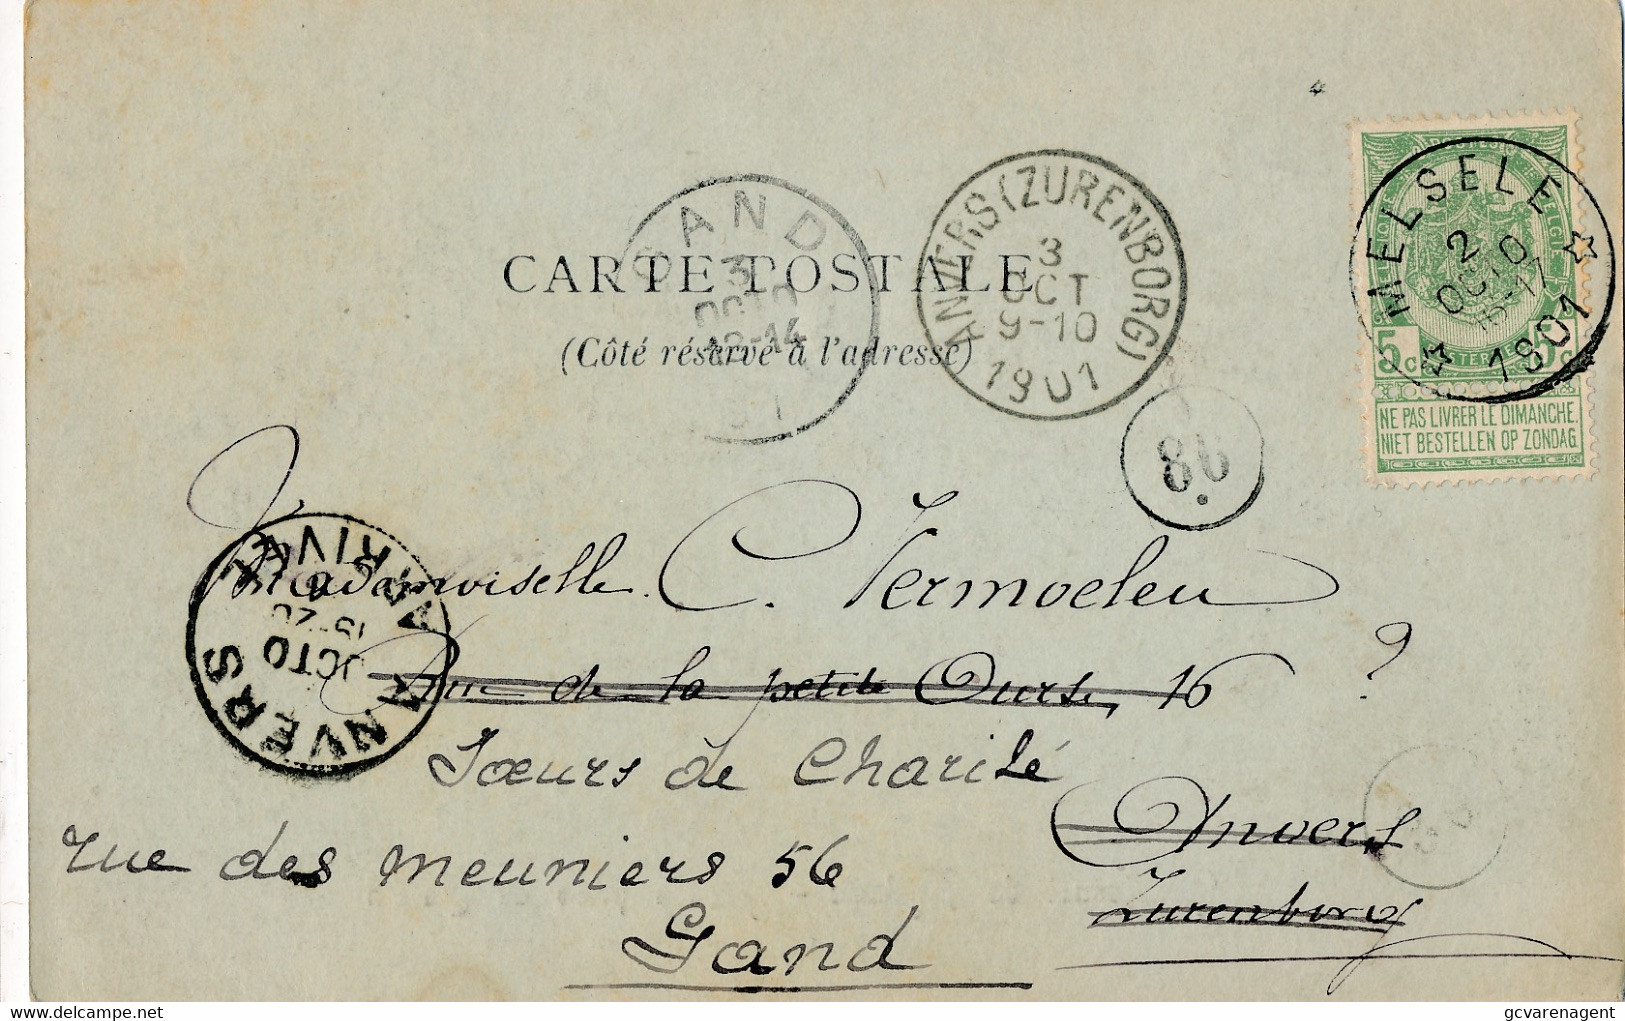 GAND
3
OCTO
12-14
ANVERS (ZURENBORG)
3
OCT
9-10
1901
MELSELE
2
OCTO
16-17
1901
5c 5c
NE PAS LIVRER LE DIMANCHE.
NIET BESTELLEN OP ZONDAG.
CARTE POSTALE
(Côté réservé à l'adresse)
86
ANVERS ARRIVÉE
OCTO
Mademoiselle C. Vermoelen
Rue de la petite Ourse, 16 ?
Sœurs de Charité
Anvers
rue des meuniers 56
Zurenborg
Gand
delcampe.net
gcvarenagent